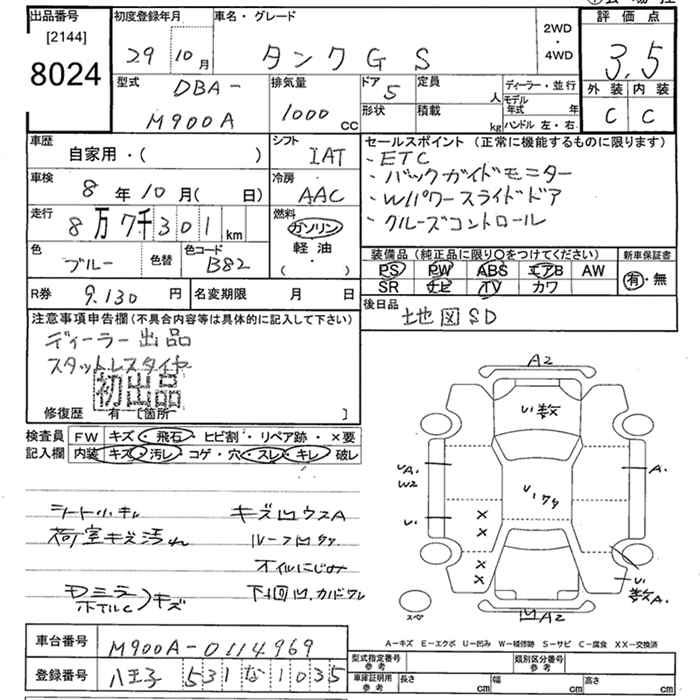 出品番号
[2144]
8024
初度登録年月
29年 10月
車名・グレード
タンク G S
2WD
・
4WD
評価点
3.5
外装 内装
C C
型式
DBA-
M900A
排気量
1000 cc
ドア 5
形状
定員 人
積載 kg
ディーラー・並行
モデル年式 年
ハンドル 左・右
車歴
自家用・( )
シフト
IAT
車検
8年10月( 日)
冷房
AAC
走行
8万7千301km
燃料
ガソリン
軽油
( ・ )
色
ブルー
色替
色コード
B82
セールスポイント(正常に機能するものに限ります)
・ETC
・バックガイドモニター
・Wパワースライドドア
・クルーズコントロール
装備品(純正品に限り○をつけてください)
PS PW ABS エアB AW
SR ナビ TV カワ
新車保証書
有・無
R券 9,130円
名変期限 月 日
後日品
地図SD
注意事項申告欄(不具合内容等は具体的に記入して下さい)
ディーラー出品
スタットレスタイヤ
初出品
修復歴 有 [箇所 ]
検査員 FW キズ・飛石・ヒビ割・リペア跡・×要
記入欄 内装 キズ・汚レ・コゲ・穴・スレ・キレ 破レ
荷室キズ汚れ
オイルにじみ
キズ
A2
U1数
A.
U1
A2
スペア
A-キズ E-エクボ U-凹み W-補修跡 S-サビ C-腐食 XX-交換済
車台番号 M900A-0114969
登録番号 八王子 531 な 1035
型式指定番号 参考
類別区分番号 参考
車庫証明用 参考
長さ cm 幅 cm 高さ cm